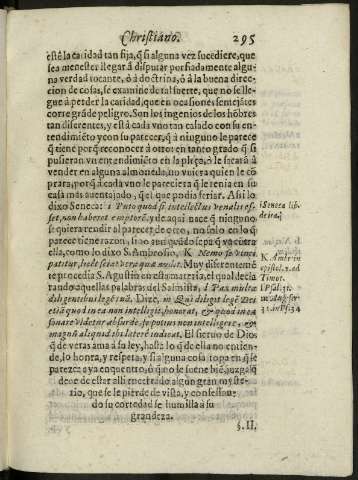 Christiano. 295
esté la caridad tan fija, q̃ si alguna vez sucediere, que
sea menester llegar á disputar porfiadamente algu-
na verdad tocante, ó á doctrina, ó á la buena direc-
cion de cosas, se examine de tal suerte, que no se lle-
gue á perder la caridad, que en ocasiones semejãtes
corre grãde peligro. Son los ingenios de los hõbres
tan diferentes, y està cada vno tan casado con su en-
tendimiẽto y con su parecer, q̃ á ninguno le parece
q̃ tiene porq̃ reconocer á otro: en tanto grado q̃ si
pusieran vn entendimiẽto en la plaça, ò le sacará á
vender en alguna almoneda, no vuiera quien le cõ
prara, porq̃ á cada vno le pareciera q̃ le tenia en su
casa más auentajado, q̃ el que podia feriar. Assi lo
dixo Seneca: i Puto quod si intellectus venalis es-
set, non haberet emptorẽ, y de aqui nace q̃ ninguno
se quiera rendir al parecer de otro, no solo en lo q̃
parece tiene razon, si no aun quãdo sepa q̃ va cõtra
ella, como lo dixo S. Ambrosio, K Nemo se vinci
patitur, licet sciat vera quæ audit. Muy diferentemẽte
reprocedia S. Agustin en esta materia, el qual decla
rando aquellas palabras del Salmista, ł Pax multa
diligentibus legẽ tuã. Dize, m Qui diligit legẽ Dei
etiã quod in ea non intelligit, honorat, & quod in ea
sonare videtur absurde, se potius non intelligere, &
magnũ aliquid ibi latere iudicat. El sieruo de Dios
q̃ de veras ama á su ley, hasta lo q̃ de ella no entien-
de, lo honra, y respeta, y si alguna cosa topa en q̃ se
parezca aya encuentro, ó que no le suene biẽ, juzga
deue de estar alli encerrado algun gran myste-
rio, que se le pierde de vista, y confessan-
do su cortedad se humilla á su
grandeza.
§. II.
i Seneca lib.
de ira.
K Ambr. in
epist. 2. ad
Timot.
l Psal.
m Aug. ser
in Ps.